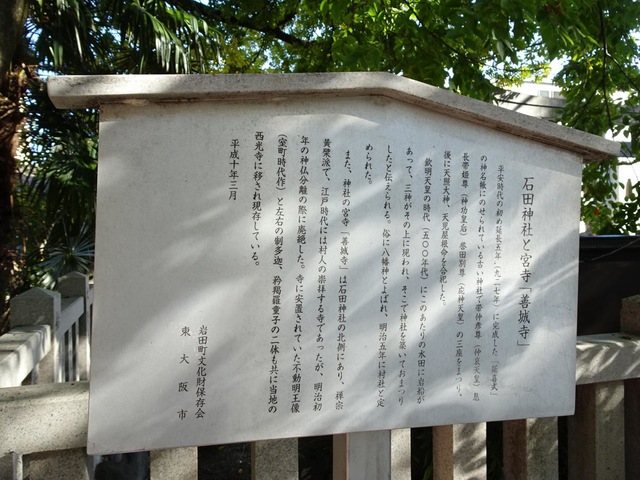 石田神社と宮寺「善城寺」
平安時代の初め延長五年（九二七年）に完成した「延喜式」
の神名帳にのせられている古い神社で帯仲彦尊（仲哀天皇）息
長帯姫尊（神功皇后）誉田別尊（応神天皇）の三座をまつり、
後に天照大神、天児屋根命を合祀した。
欽明天皇の時代（五〇〇年代）にこのあたりの水田に岩松が
あって、三神がその上に現われ、そこで神社を築いておまつり
したと伝えられる。俗に八幡神とよばれ、明治五年に村社と定
められた。
また、神社の宮寺「善城寺」は石田神社の北側にあり、禅宗
黄檗派で、江戸時代には村人の崇拝する寺であったが、明治初
年の神仏分離の際に廃絶した。寺に安置されていた不動明王像
（室町時代作）と左右の制多迦、矜羯羅童子の二体も共に当地の
西光寺に移され現存している。
平成十年三月
岩田町文化財保存会
東大阪市